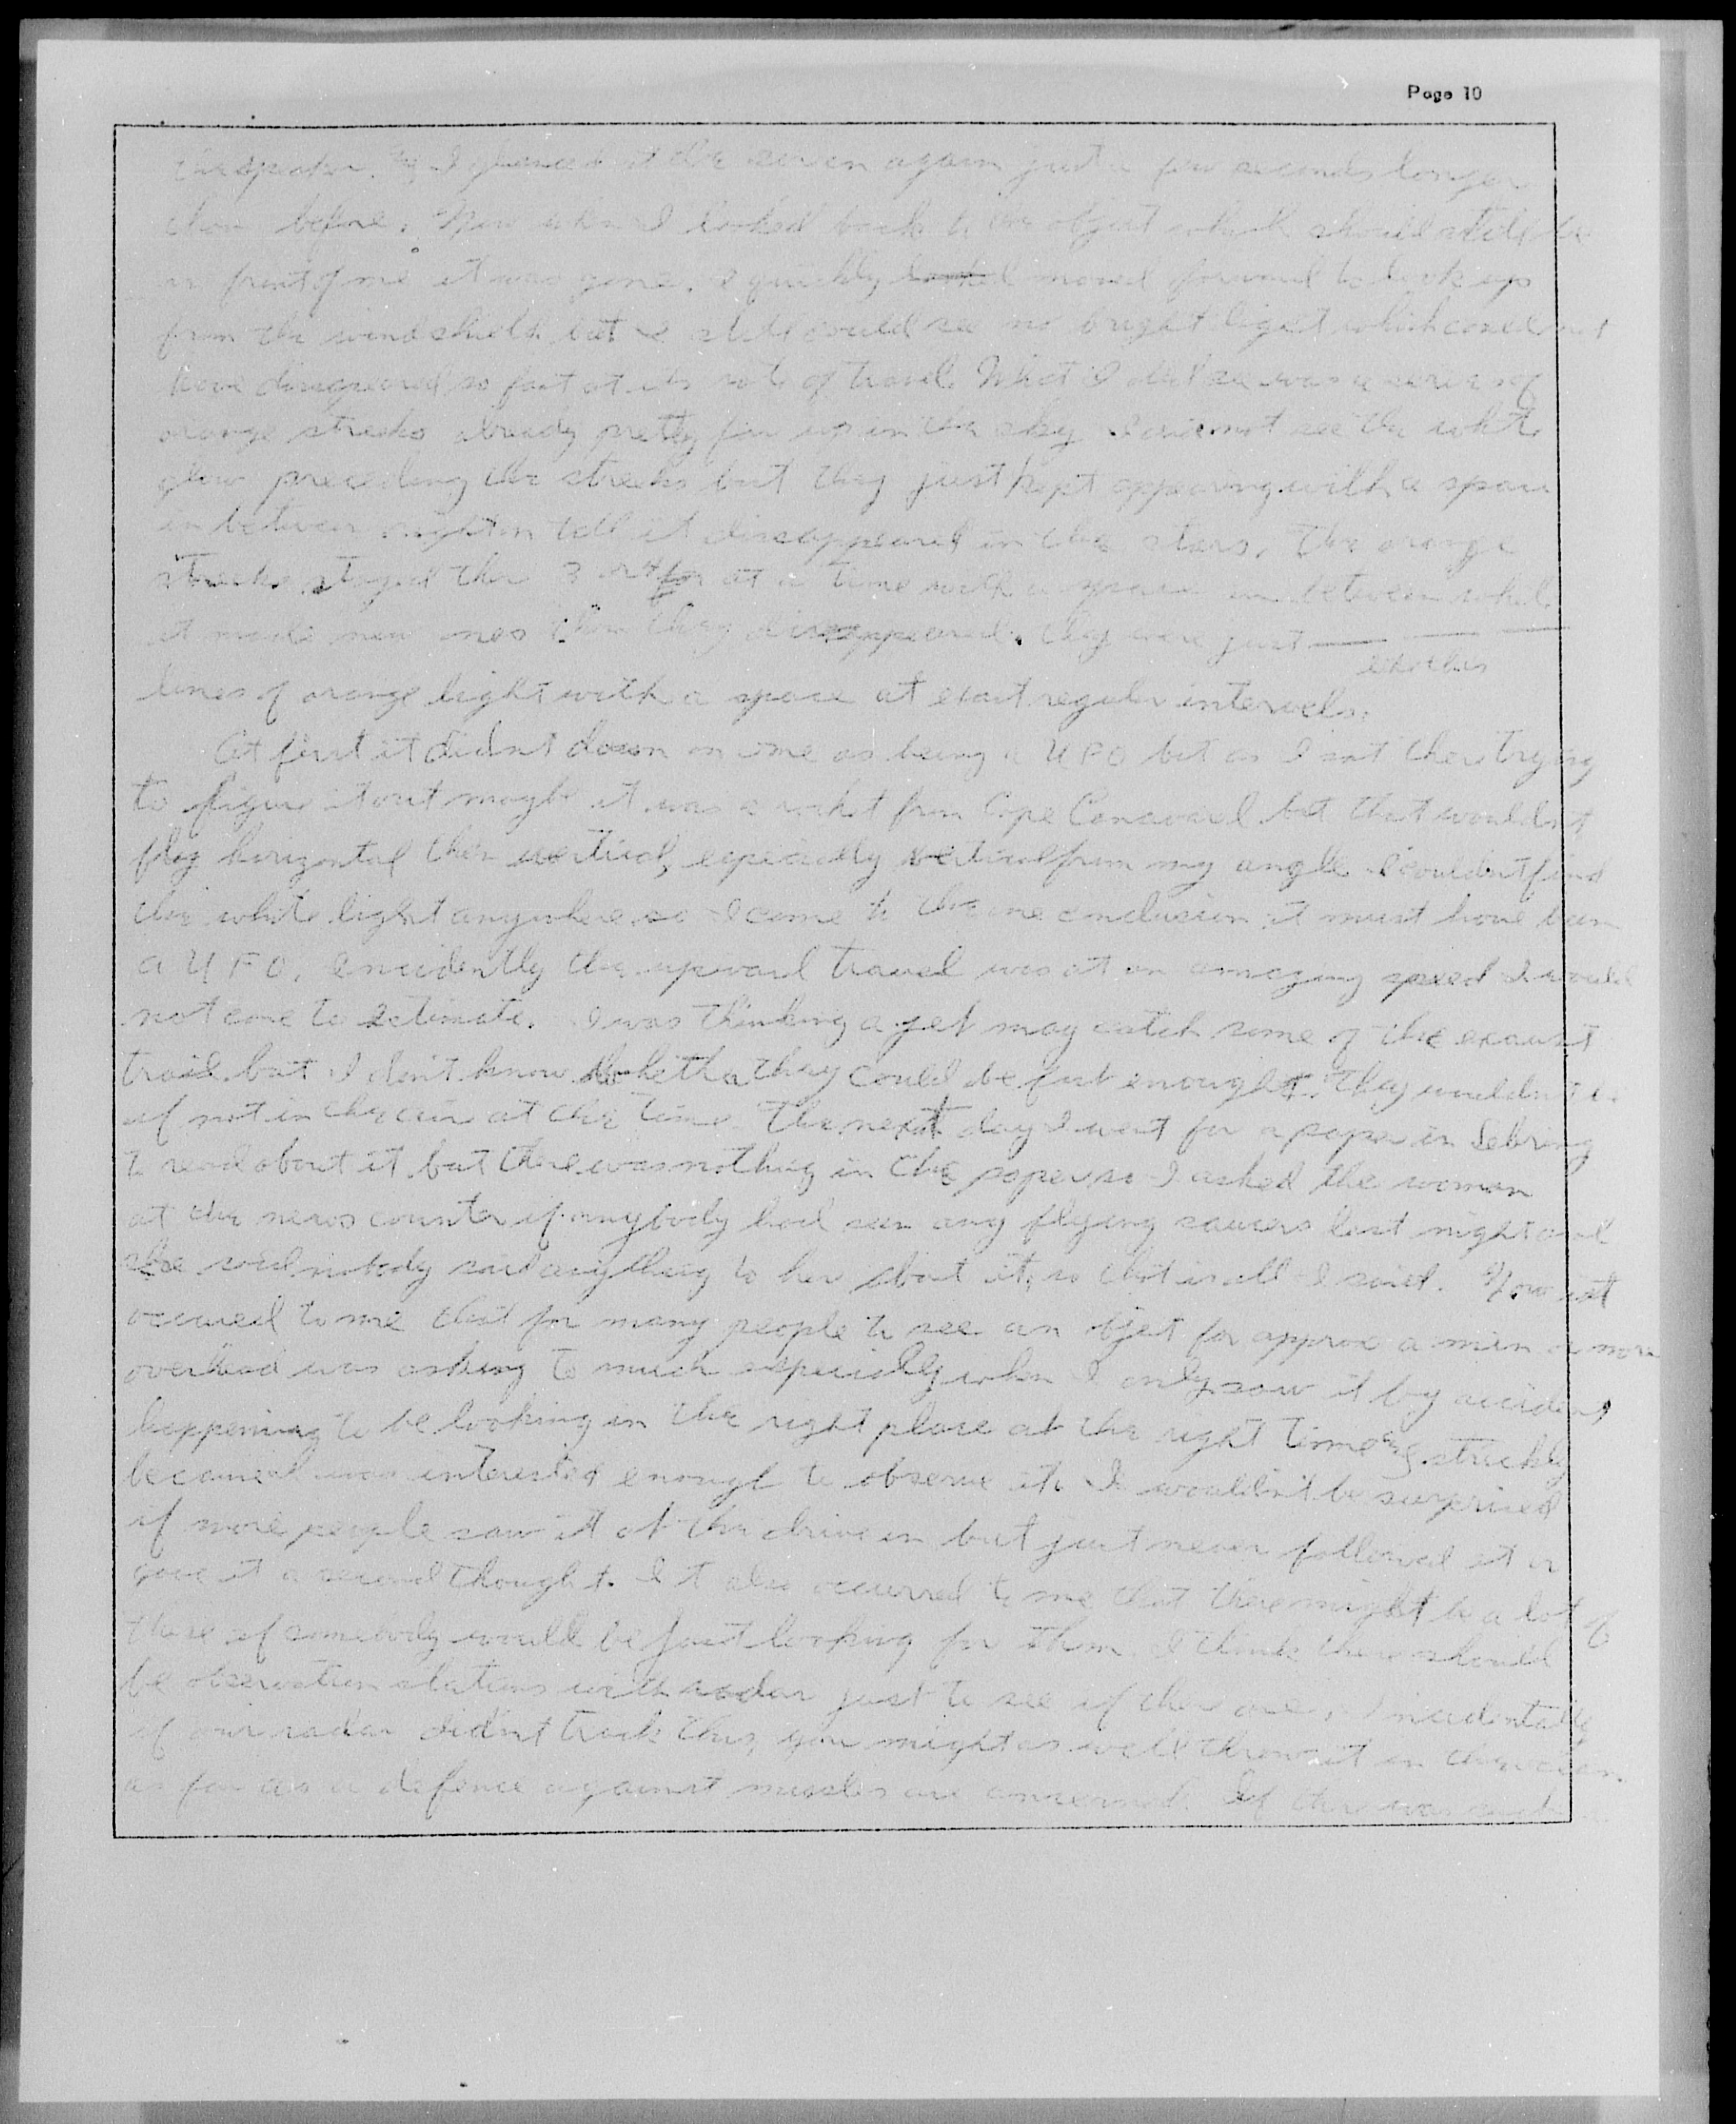 Page 10
the speaker. I glanced at the screen again just a few seconds longer
than before. Now when I looked back to the object which should still be
in front of me it was gone. I quickly looked moved forward to look up
from the windshield but I still could see no bright light which could not
have disappeared so fast at its rate of travel. What I did see was a series of
orange streaks already pretty far up in the sky I could not see the white
glow preceeding the streaks but they just kept appearing with a space
in between right on till it disappeared in the stars. The orange
streaks stayed there 3 or 4 at a time with a space in between while
it made new ones then they disappeared. they were just — — —
like this
lines of orange light with a space at exact regular intervals.
At first it didnt dawn on me as being a UFO but as I sat there trying
to figure it out maybe it was a rocket from Cape Canaveral but that wouldnt
fly horizontal then vertical, especially vertical from my angle I couldnt find
the white light anywhere so I came to the one conclusion it must have been
a UFO. Incidently the upward travel was at an amazing speed I would
not care to estimate. I was thinking a jet may catch some of the exaust
trail but I don't know whether they could be fast enough. They wouldn't
if not in the air at the time. The next day I went for a paper in Sebring
to read about it but there was nothing in the paper so I asked the woman
at the news counter if anybody had seen any flying saucers last night and
she said nobody said anything to her about it, so that is all I said. Now it
occured to me that for many people to see an objet for approx a min or more
overhead was asking to much especially when I only saw it by accident,
happening to be looking in the right place at the right time strickly
because I was interested enough to observe it. I wouldn't be surprised
if more people saw it at the drive in but just never followed it or
gave it a second thought. It also occurred to me that there might be a lot of
these if somebody would be just looking for them. I think there should
be observation stations with radar just to see if there are. Incidentally
if our radar didn't track this, you might as well throw it in the ocean
as far as a defence against missles are concerned. If there was such